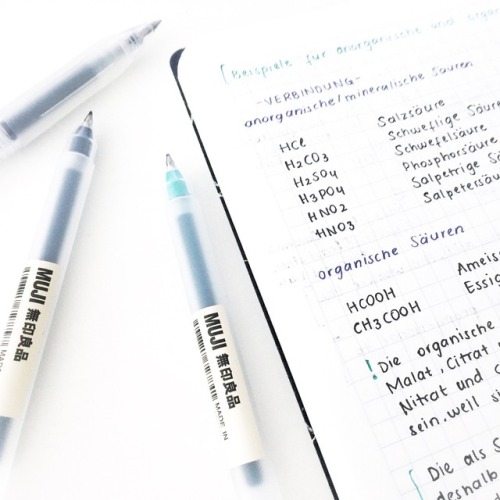 Beispiele für anorganische und orga
-VERBINDUNG-
anorganische/mineralische Säuren
HCl Salzsäure
H2CO3 Schweflige Säure
H2SO4 Schwefelsäure
H3PO4 Phosphorsäure
HNO2 Salpetrige Sä
HNO3 Salpetersäu
organische Säuren
HCOOH Ameis
CH3COOH Essig
! Die organische
Malat, Citrat
Nitrat und
sein, weil si
Die als S
deshalb
MUJI 無印良品
MUJI 無印良品 MADE IN